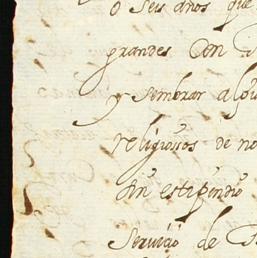 o seis años que
grandes con
y sembrar algu
religiosos de no
sin estipendio
servicio de